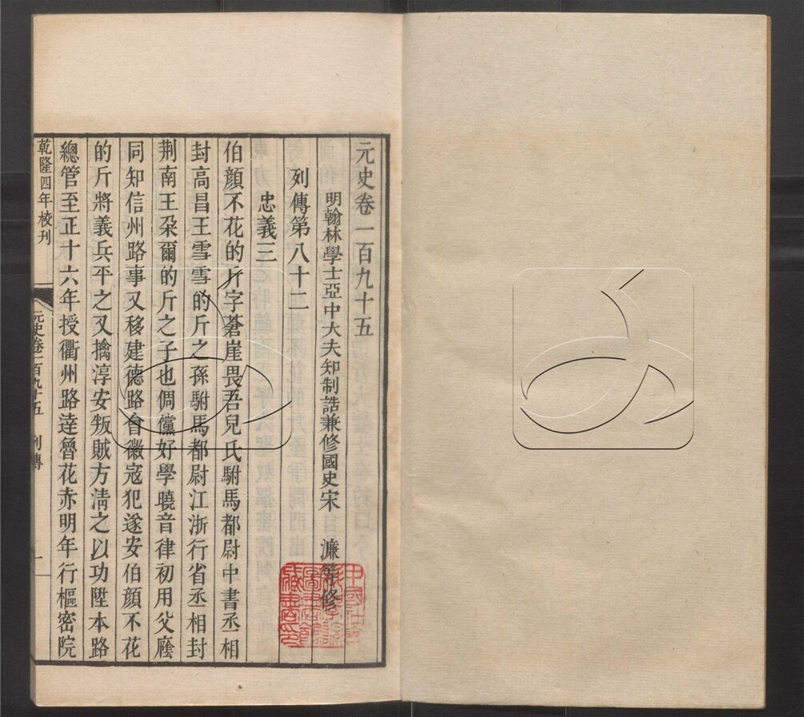 元史卷一百九十五
明翰林學士亞中大夫知制誥兼修國史宋　濂等修
列傳第八十二
忠義三
伯顏不花的斤字蒼崖畏吾兒氏駙馬都尉中書丞相
封高昌王雪雪的斤之孫駙馬都尉江浙行省丞相封
荆南王朶爾的斤之子也倜儻好學曉音律初用父廕
同知信州路事又移建德路會徽寇犯遂安伯顏不花
的斤將義兵平之又擒淳安叛賊方清之以功陞本路
總管至正十六年授衢州路達魯花赤明年行樞密院
乾隆四年校刊
元史卷一百九十五 列傳 一